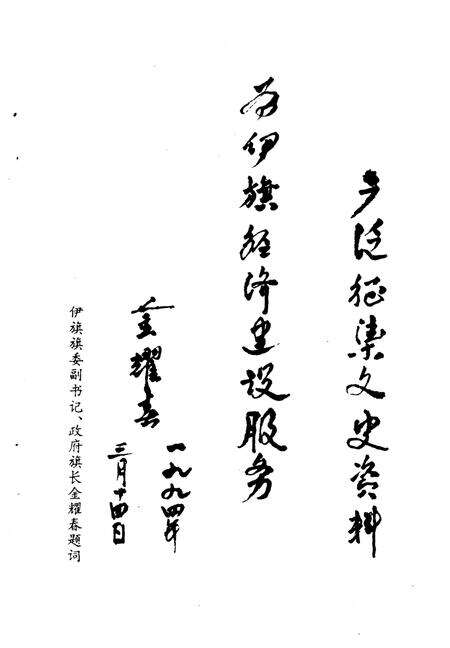 广泛征集文史资料
为伊旗经济建设服务
金耀春
一九九四年
三月十四日
伊旗旗委副书记、政府旗长金耀春题词